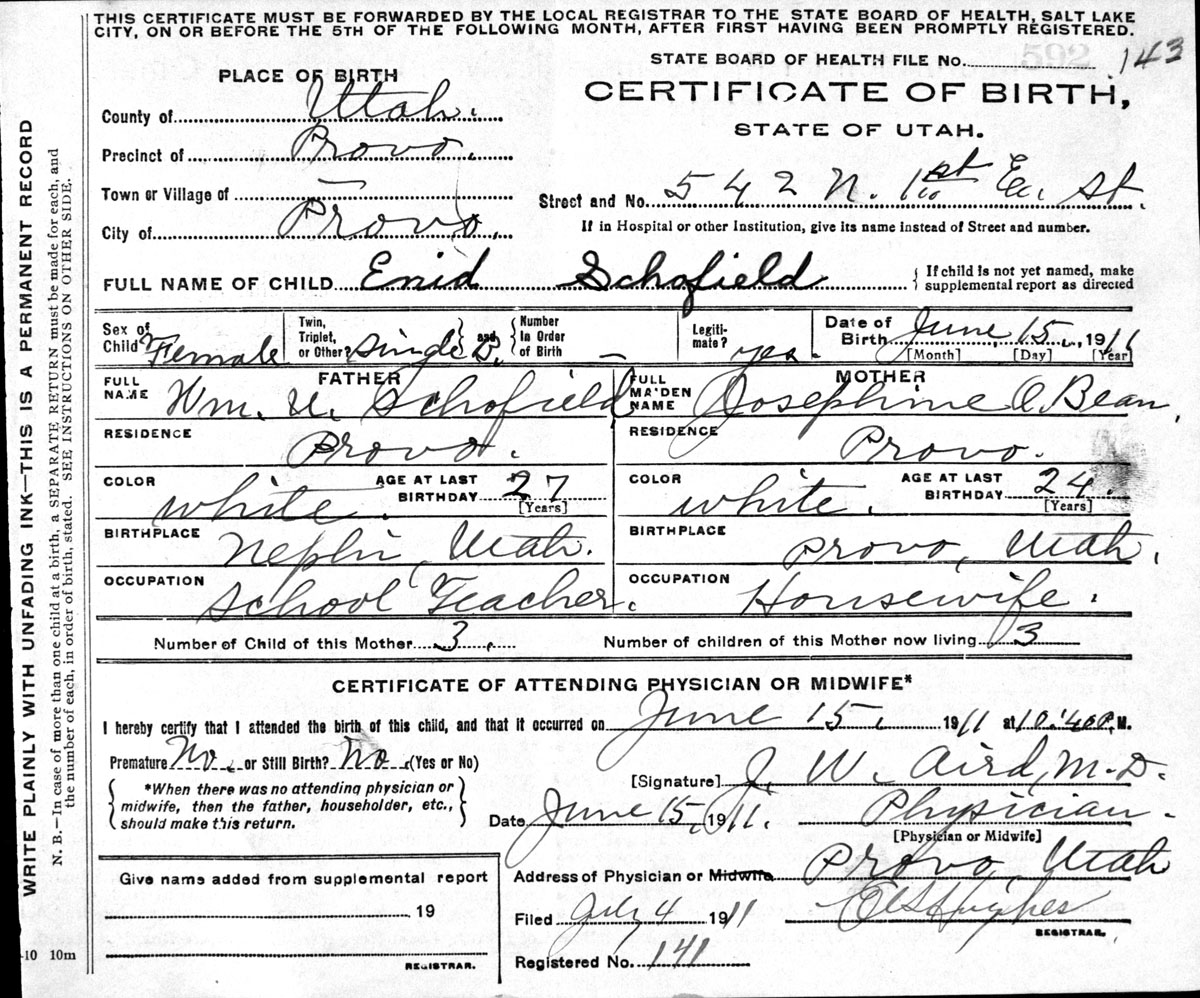 THIS CERTIFICATE MUST BE FORWARDED BY THE LOCAL REGISTRAR TO THE STATE BOARD OF HEALTH, SALT LAKE
CITY, ON OR BEFORE THE 5TH OF THE FOLLOWING MONTH, AFTER FIRST HAVING BEEN PROMPTLY REGISTERED.
STATE BOARD OF HEALTH FILE No. 143
PLACE OF BIRTH
CERTIFICATE OF BIRTH,
STATE OF UTAH.
County of Utah.
Precinct of Provo.
Town or Village of —
City of Provo.
Street and No. 542 N. 1st Ea. St.
If in Hospital or other Institution, give its name instead of Street and number.
FULL NAME OF CHILD Enid Schofield
{ If child is not yet named, make
supplemental report as directed
Sex of Child Female
Twin, Triplet, or Other? Single } and { Number In Order of Birth —
Legitimate? yes.
Date of Birth June 15, 1911
[Month] [Day] [Year]
FATHER
FULL NAME Wm. U. Schofield
RESIDENCE Provo.
COLOR white.
AGE AT LAST BIRTHDAY 27
[Years]
BIRTHPLACE Nephi, Utah.
OCCUPATION School Teacher.
MOTHER
FULL MAIDEN NAME Josephine O. Bean.
RESIDENCE Provo.
COLOR white.
AGE AT LAST BIRTHDAY 24.
[Years]
BIRTHPLACE Provo, Utah.
OCCUPATION Housewife.
Number of Child of this Mother 3. Number of children of this Mother now living 3
CERTIFICATE OF ATTENDING PHYSICIAN OR MIDWIFE*
I hereby certify that I attended the birth of this child, and that it occurred on June 15, 1911 at 10:40 P. M.
Premature No. or Still Birth? No. (Yes or No)
*When there was no attending physician or
midwife, then the father, householder, etc.,
should make this return.
[Signature] J. W. Aird, M.D.
Date June 15, 1911. Physician.
[Physician or Midwife]
Address of Physician or Midwife Provo, Utah
Filed July 4 1911 Hughes
REGISTRAR.
Registered No. 141
Give name added from supplemental report
19
REGISTRAR.
-10 10m
WRITE PLAINLY WITH UNFADING INK—THIS IS A PERMANENT RECORD
N. B.—In case of more than one child at a birth, a SEPARATE RETURN must be made for each, and
the number of each, in order of birth, stated. SEE INSTRUCTIONS ON OTHER SIDE.